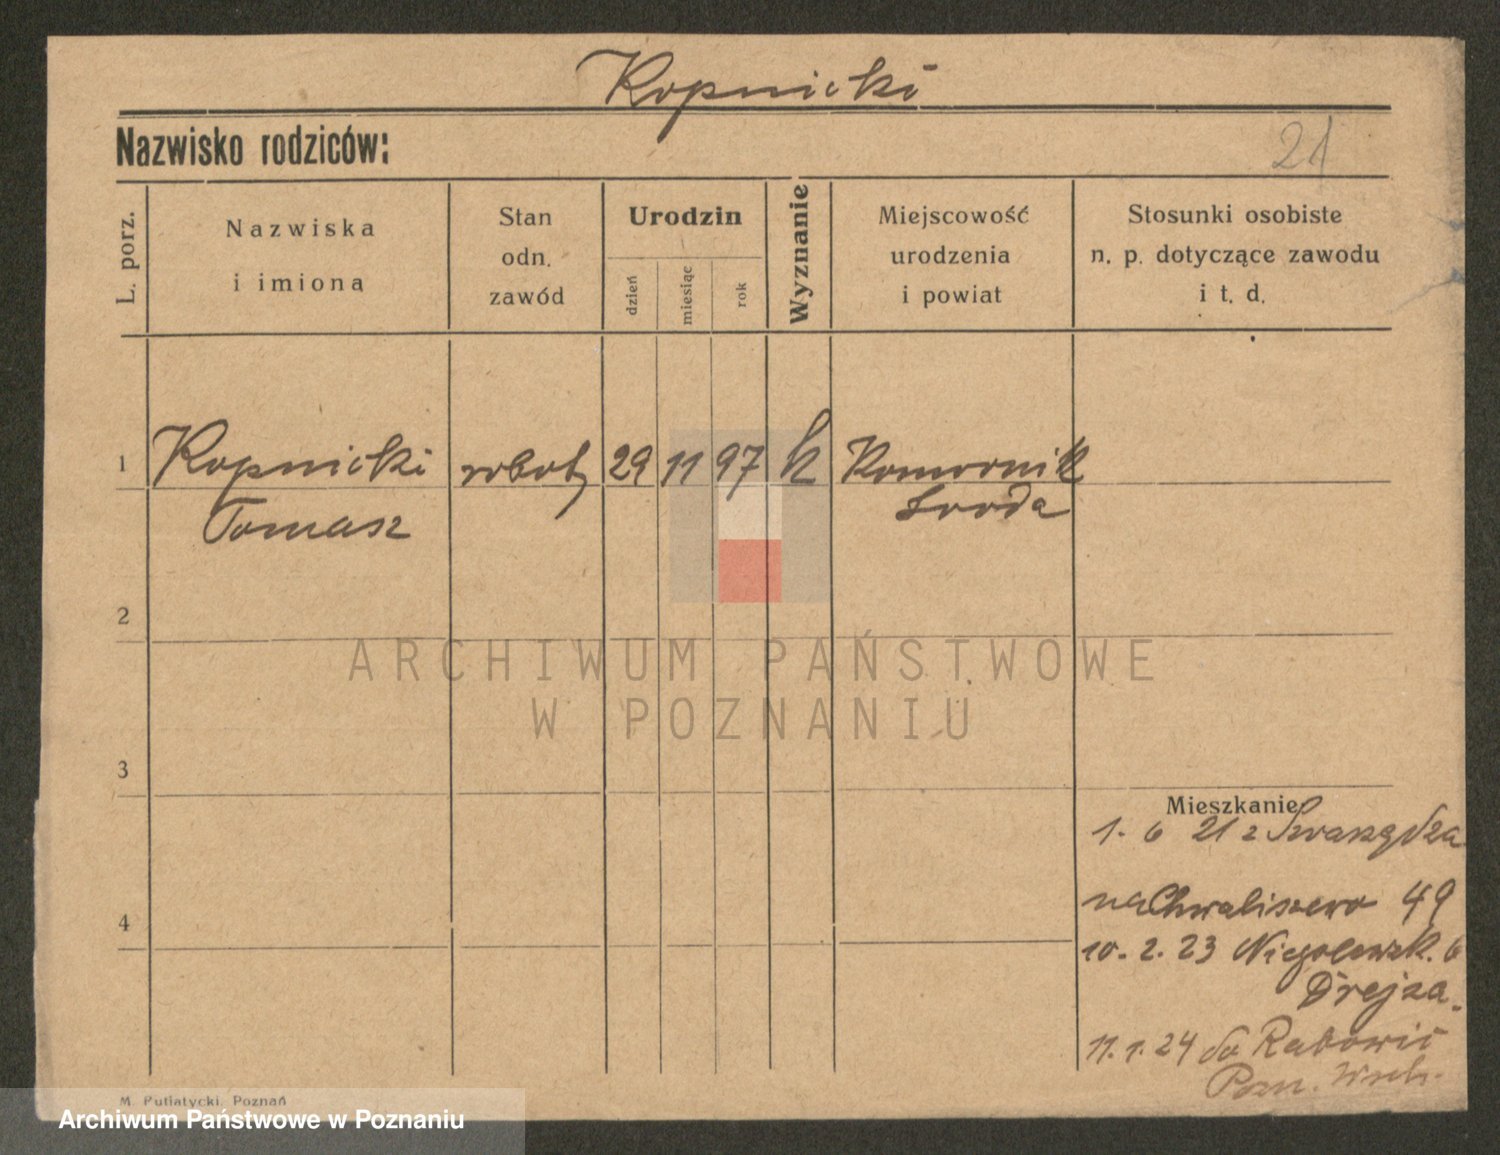 Kopnicki
Nazwisko rodziców:
21
L. porz.
Nazwiska
i imiona
Stan
odn.
zawód
Urodzin
dzień
miesiąc
rok
Wyznanie
Miejscowość
urodzenia
i powiat
Stosunki osobiste
n. p. dotyczące zawodu
i t. d.
1 Kopnicki robotn 29 11 97 k Komornik
Tomasz Środa
2
ARCHIWUM PAŃSTWOWE
W POZNANIU
3
Mieszkanie
1. 6 21 z Swarzędza
na Chwaliszewo 49
4
10. 2. 23 Niegolewsk. 6
Drejza.
11. 1. 24 do Rabowic
Pozn. Wsch.
M. Putiatycki, Poznań
Archiwum Państwowe w Poznaniu